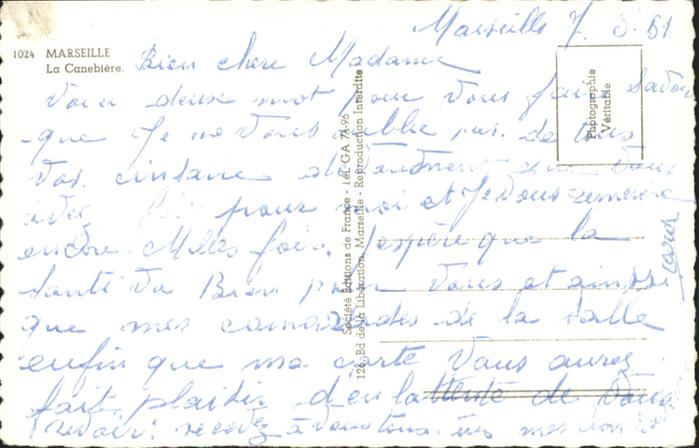 Marseille 7. 5. 61
1024 MARSEILLE
La Canebière.
Bien chere Madame
deux mot pour vous fair
que Je ne vous oublie pas de tous
vos que vous
avez fait pour moi et Je vous remercie
encore Milles fois. J'espère que la
santé va Bien pour vous et ainssi
que mes camarades de la salle
enfin que ma carte vous aurez
fait plaisir d'en lattente de vous
revoir. recevez à vous tous mes bons
Société Éditions de France - Tél. GA 74-96
126, Bd de la Libération, Marseille - Reproduction Interdite
Photographie
Véritable